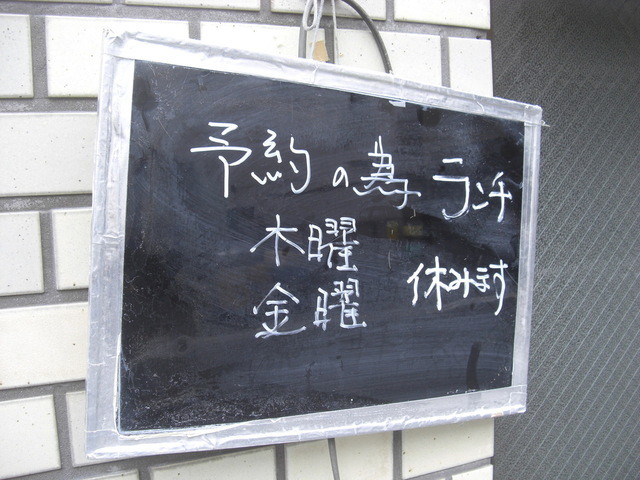 予約の為 ランチ
木曜
金曜
休みます